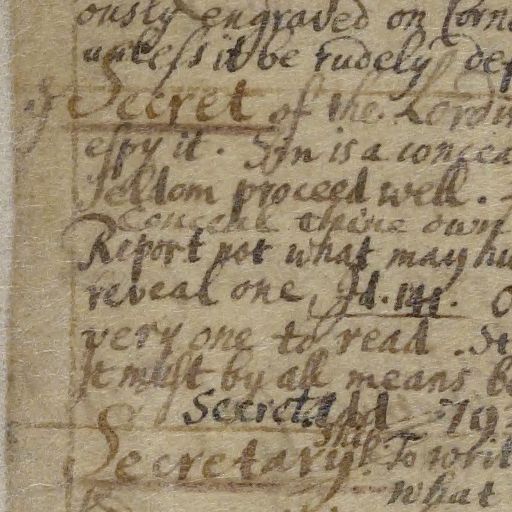 ously engraved on Corn
unless it be rudely def
Secret of the Lord is
espy it. Sin is a concea
seldom proceed well.
Conceal thine own
Report not what may hu
reveal one, Id. 141.
very one to read. St
It must by all means b
Secret Id 79
Secretary ship. To writ
what